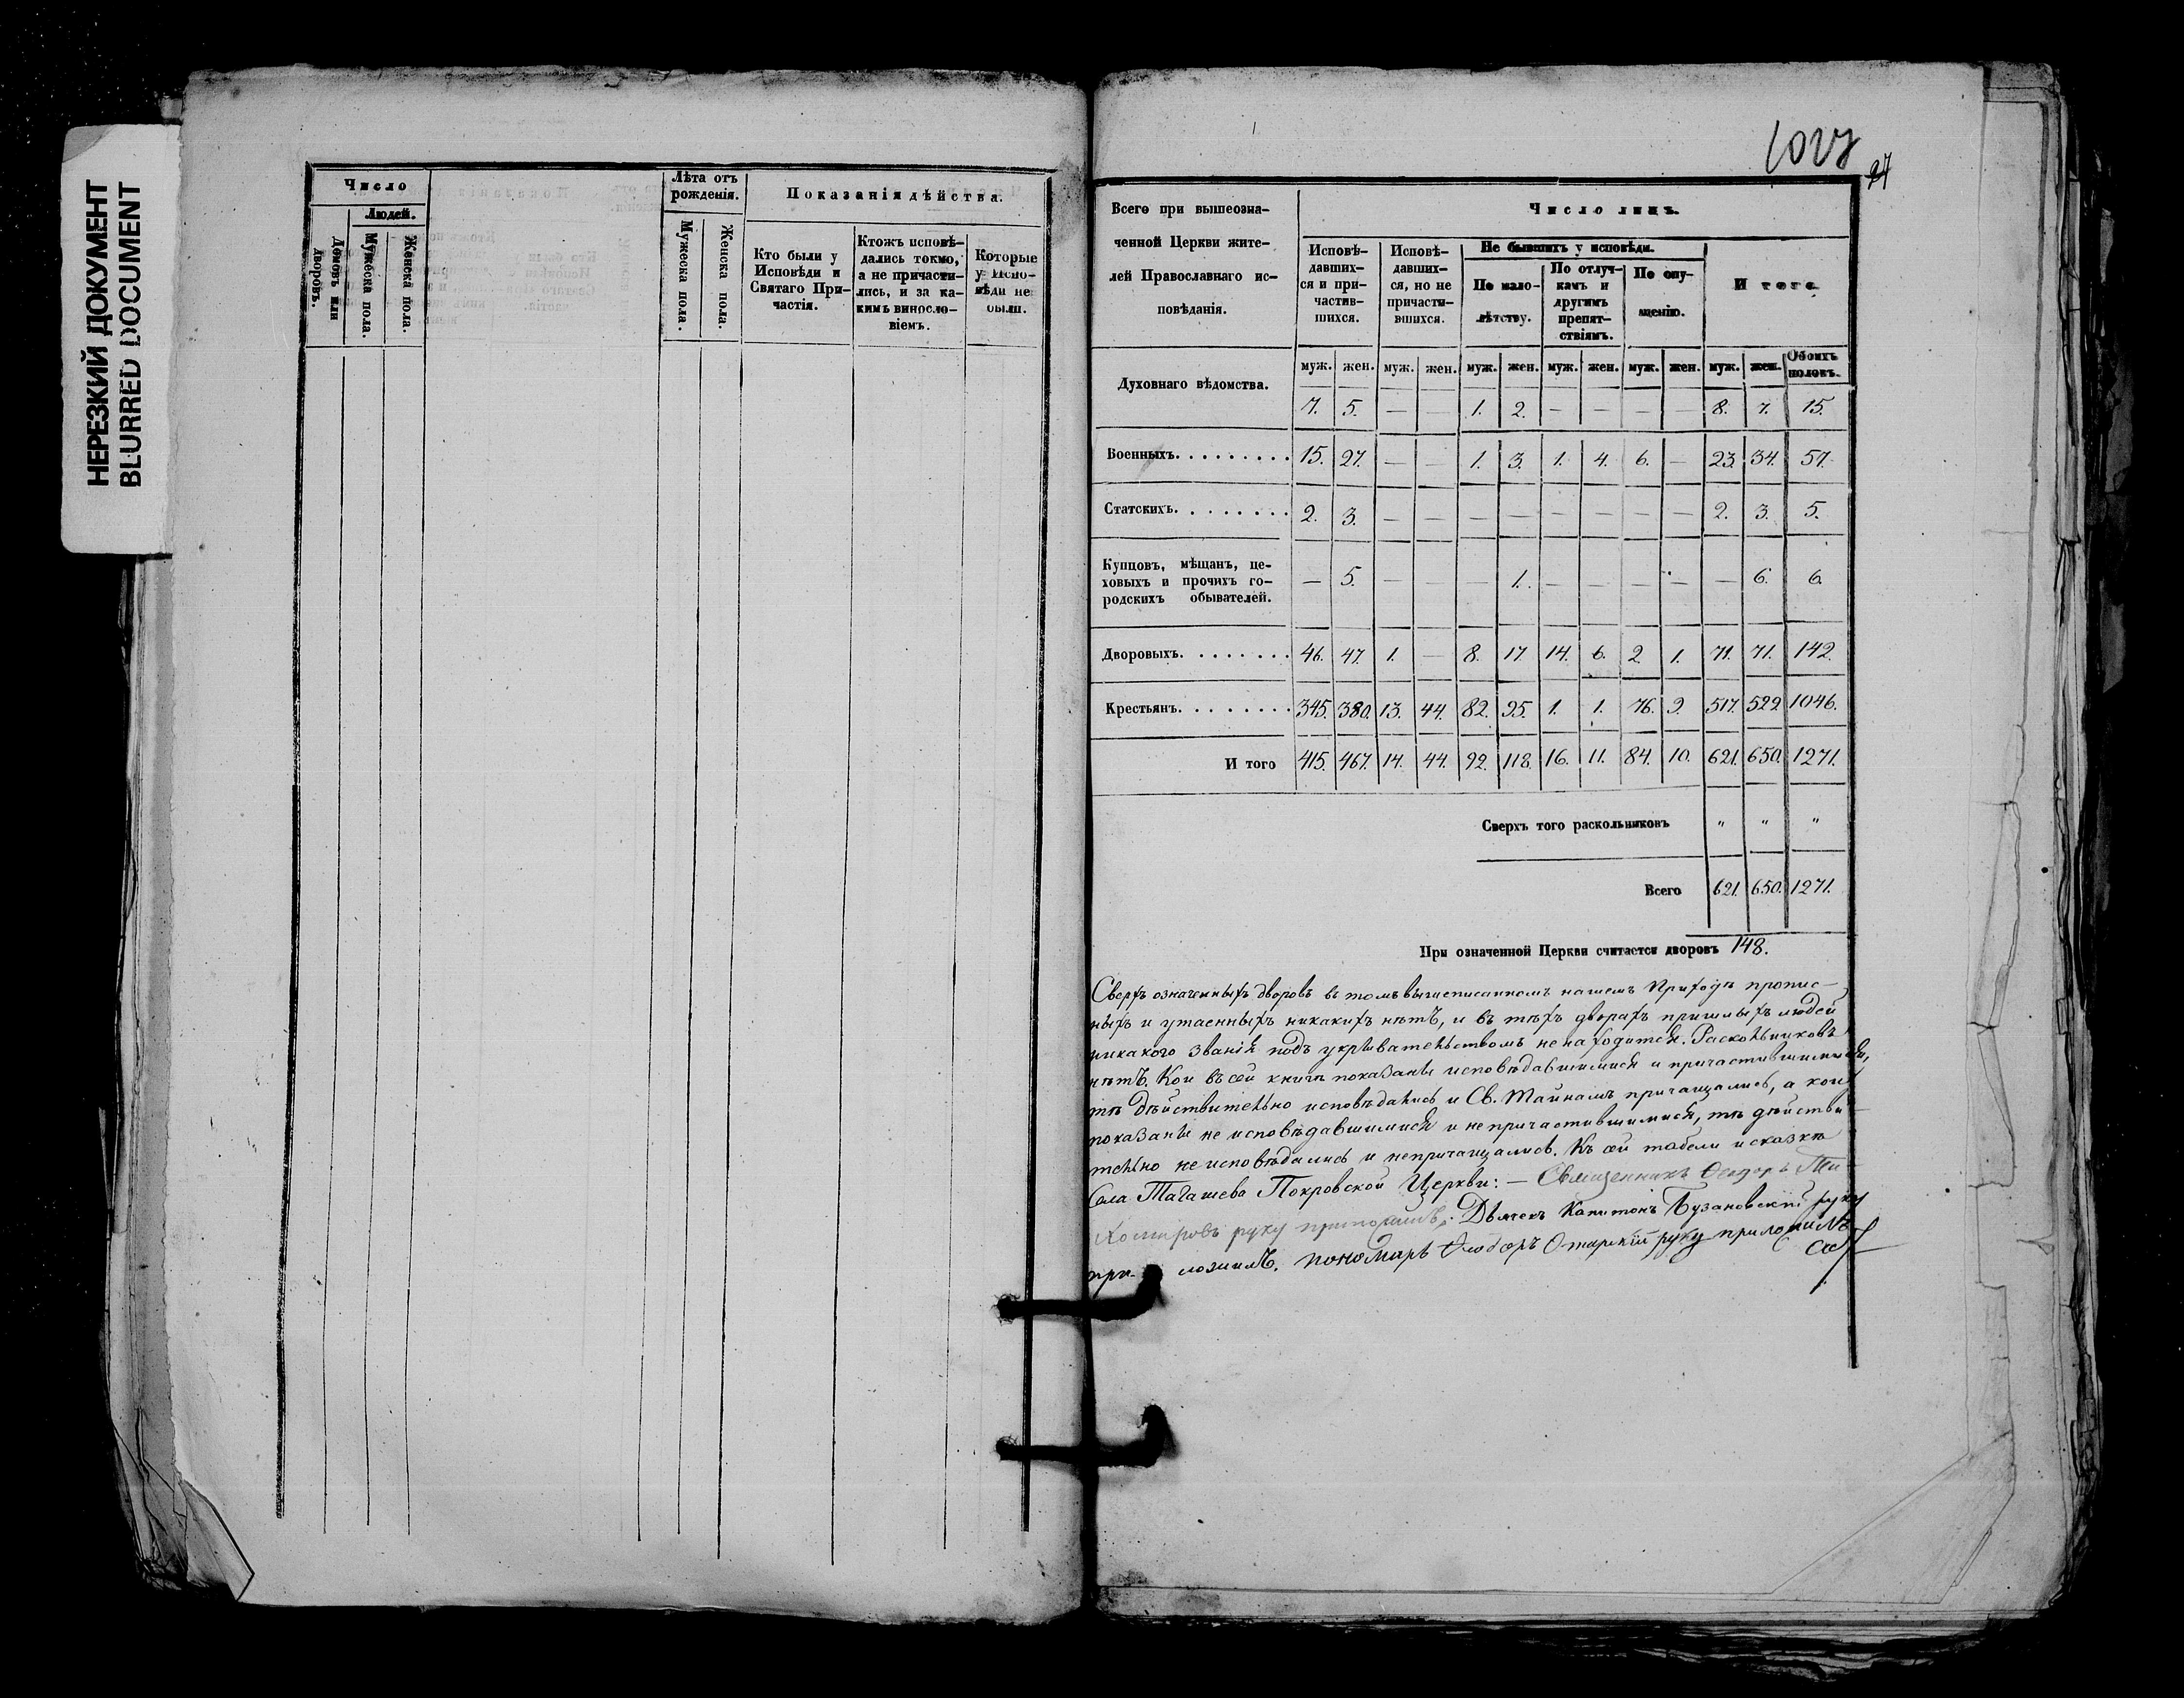 НЕРЕЗКИЙ ДОКУМЕНТ
BLURRED DOCUMENT
Число
Людей.
Домовъ или дворовъ.
Мужеска пола.
Женска пола.
Лѣта отъ рожденія.
Мужеска пола.
Женска пола.
Показанія дѣйства.
Кто были у Исповѣди и Святаго При-
частія.
Ктожъ исповѣ-
дались токмо,
а не причасти-
лись, и за ка-
кимъ винословіемъ.
Которые
у Испо-
вѣди не
были.
24
Всего при вышеозна-
ченной Церкви жите-
лей Православнаго ис-
повѣданія.
Число лицъ.
Исповѣ-
давших-
ся и при-
частив-
шихся.
Исповѣ-
давших-
ся, но не
причасти-
вшихся.
Не бывшихъ у исповѣди.
По мало-
лѣтству.
По отлуч-
камъ и
другимъ
препят-
ствіямъ.
По опу-
щенію.
И того
муж. жен. муж. жен. муж. жен. муж. жен. муж. жен. муж. жен. Обоихъ половъ.
Духовнаго вѣдомства. 7. 5. — — 1. 2. — — — — 8. 7. 15.
Военныхъ. 15. 27. — — 1. 3. 1. 4. 6. — 23. 34. 57.
Статскихъ. 2. 3. — — — — — — — — 2. 3. 5.
Купцовъ, мѣщанъ, це-
ховыхъ и прочихъ го-
родскихъ обывателей. — 5. — — — 1. — — — — — 6. 6.
Дворовыхъ. 46. 47. 1. — 8. 17. 14. 6. 2. 1. 71. 71. 142.
Крестьянъ. 345. 380. 13. 44. 82. 95. 1. 1. 76. 9. 517. 529 1046.
И того 415. 467. 14. 44. 92. 118. 16. 11. 84. 10. 621. 650. 1271.
Сверхъ того раскольниковъ " " "
Всего 621. 650. 1271.
При означенной Церкви считается дворовъ 148.
Сверхъ означенныхъ дворовъ въ томъ вышеписанномъ нашемъ Приходѣ пропис-
ныхъ и утаенныхъ никакихъ нѣтъ, и въ тѣхъ дворахъ пришлыхъ людей
никакого званія подъ укрывательствомъ не находится. Раскольниковъ
нѣтъ. Кои въ сей книгѣ показаны исповѣдавшимися и причастившимися,
тѣ дѣйствительно исповѣдались и Св. Тайнамъ причащались, а кои
показаны не исповѣдавшимися и непричастившимися, тѣ дѣйстви-
тельно не исповѣдались и непричащались. Къ сей табели и сказкѣ
Села Тагашева Покровской Церкви: — Священникъ Ѳеодоръ
руку приложилъ. Дьячекъ Капитонъ Бузановскій руку
приложилъ. пономарь руку приложилъ